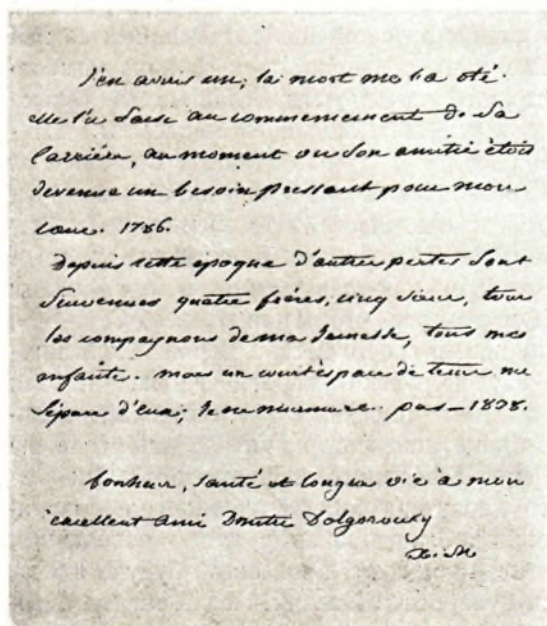 J'en avais un; la mort me l'a oté.
elle l'a saisi au commencement de sa
carrière, au moment ou son amitié étois
devenue un besoin pressant pour mon
cœur. 1786.
Depuis cette époque d'autres pertes sont
survenues quatre freres, cinq sœurs, tous
les compagnons de ma jeunesse, tous mes
enfants. mais un court espace de tems me
sépare d'eux; je ne murmure pas – 1828.
bonheur, santé et longue vie a mon
excellent ami Dmitri Dolgorouky
X. M